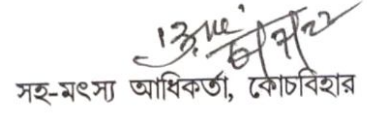 সহ-মৎস্য আধিকর্তা, কোচবিহার